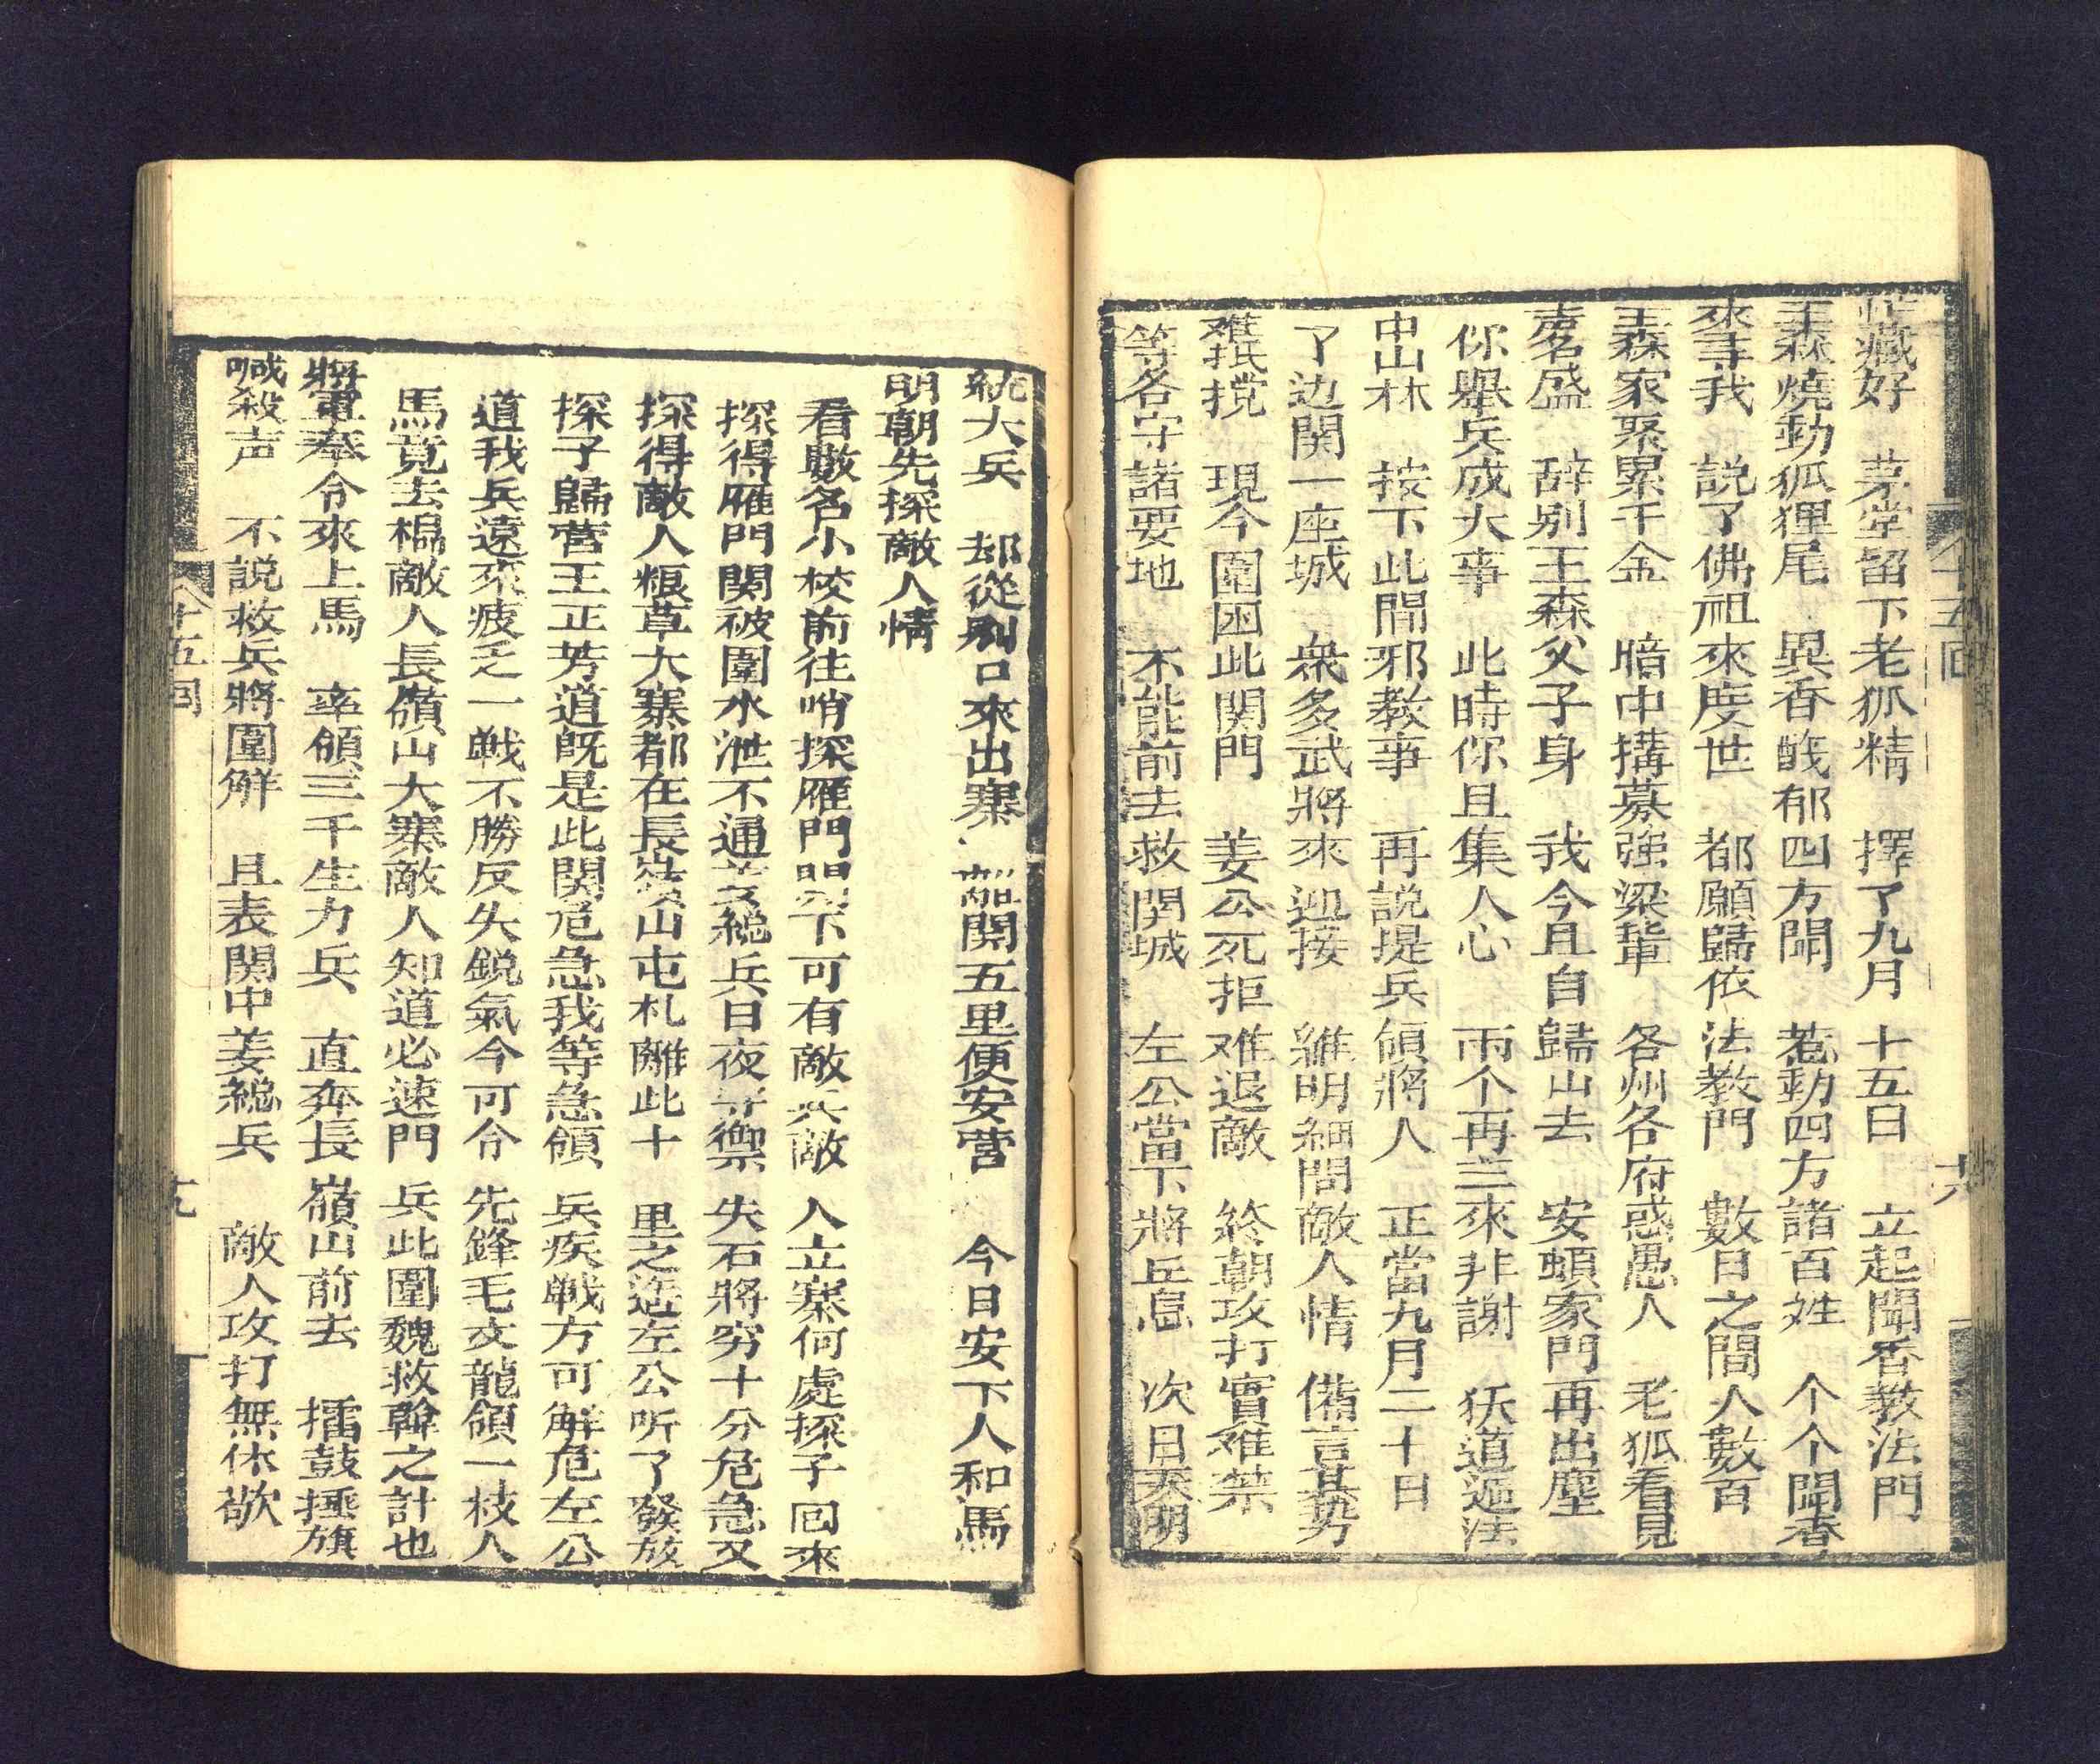 藏好　茅堂留下老狐精　擇了九月十五日　立起聞香教法門
王森燒動狐狸尾　異香馥郁四方聞　惹動四方諸百姓　个个聞香
來尋我　説了佛祖來度世　都願歸依法教門　數日之間人數百
王森家聚累千金　暗中搆募強梁輩　各州各府惑愚人　老狐看見
声名盛　辞别王森父子身　我今且自歸山去　安頓家門再出塵
你舉兵成大事　此時你且集人心　兩个再三來拜謝　妖道
中山林　按下此間邪教事　再説提兵領將人　正當九月二十日
了边関一座城　衆多武將來迎接　維明細問敵人情　備言其势
難抵搅　現今圍困此関門　姜公死拒难退敵　終朝攻打實难禁
等各守諸要地　不能前去救関城　左公當下將兵息　次日天明
十五回
十六
統大兵　却從別口來出寨　離関五里便安营　今日安下人和馬
明朝先探敵人情
看數名小校前往哨探雁門関下可有敵兵敵人立寨何處探子囘來
探得雁門関被圍水泄不通姜総兵日夜守禦失石將穷十分危急又
探得敵人粮草大寨都在長嶺山屯札離此十里之遥左公听了發放
探子歸营王正芳道既是此関危急我等急領兵疾戦方可解危左公
道我兵遠來疲乏一戦不勝反失鋭氣今可令先鋒毛文龍領一枝人
馬竟去搗敵人長嶺山大寨敵人知道必速門兵此圍魏救韓之計也
將軍奉令來上馬　率領三千生力兵　直奔長嶺山前去　擂鼓揺旗
喊殺声　不説救兵將圍解　且表関中姜総兵　敵人攻打無休歇
十五回